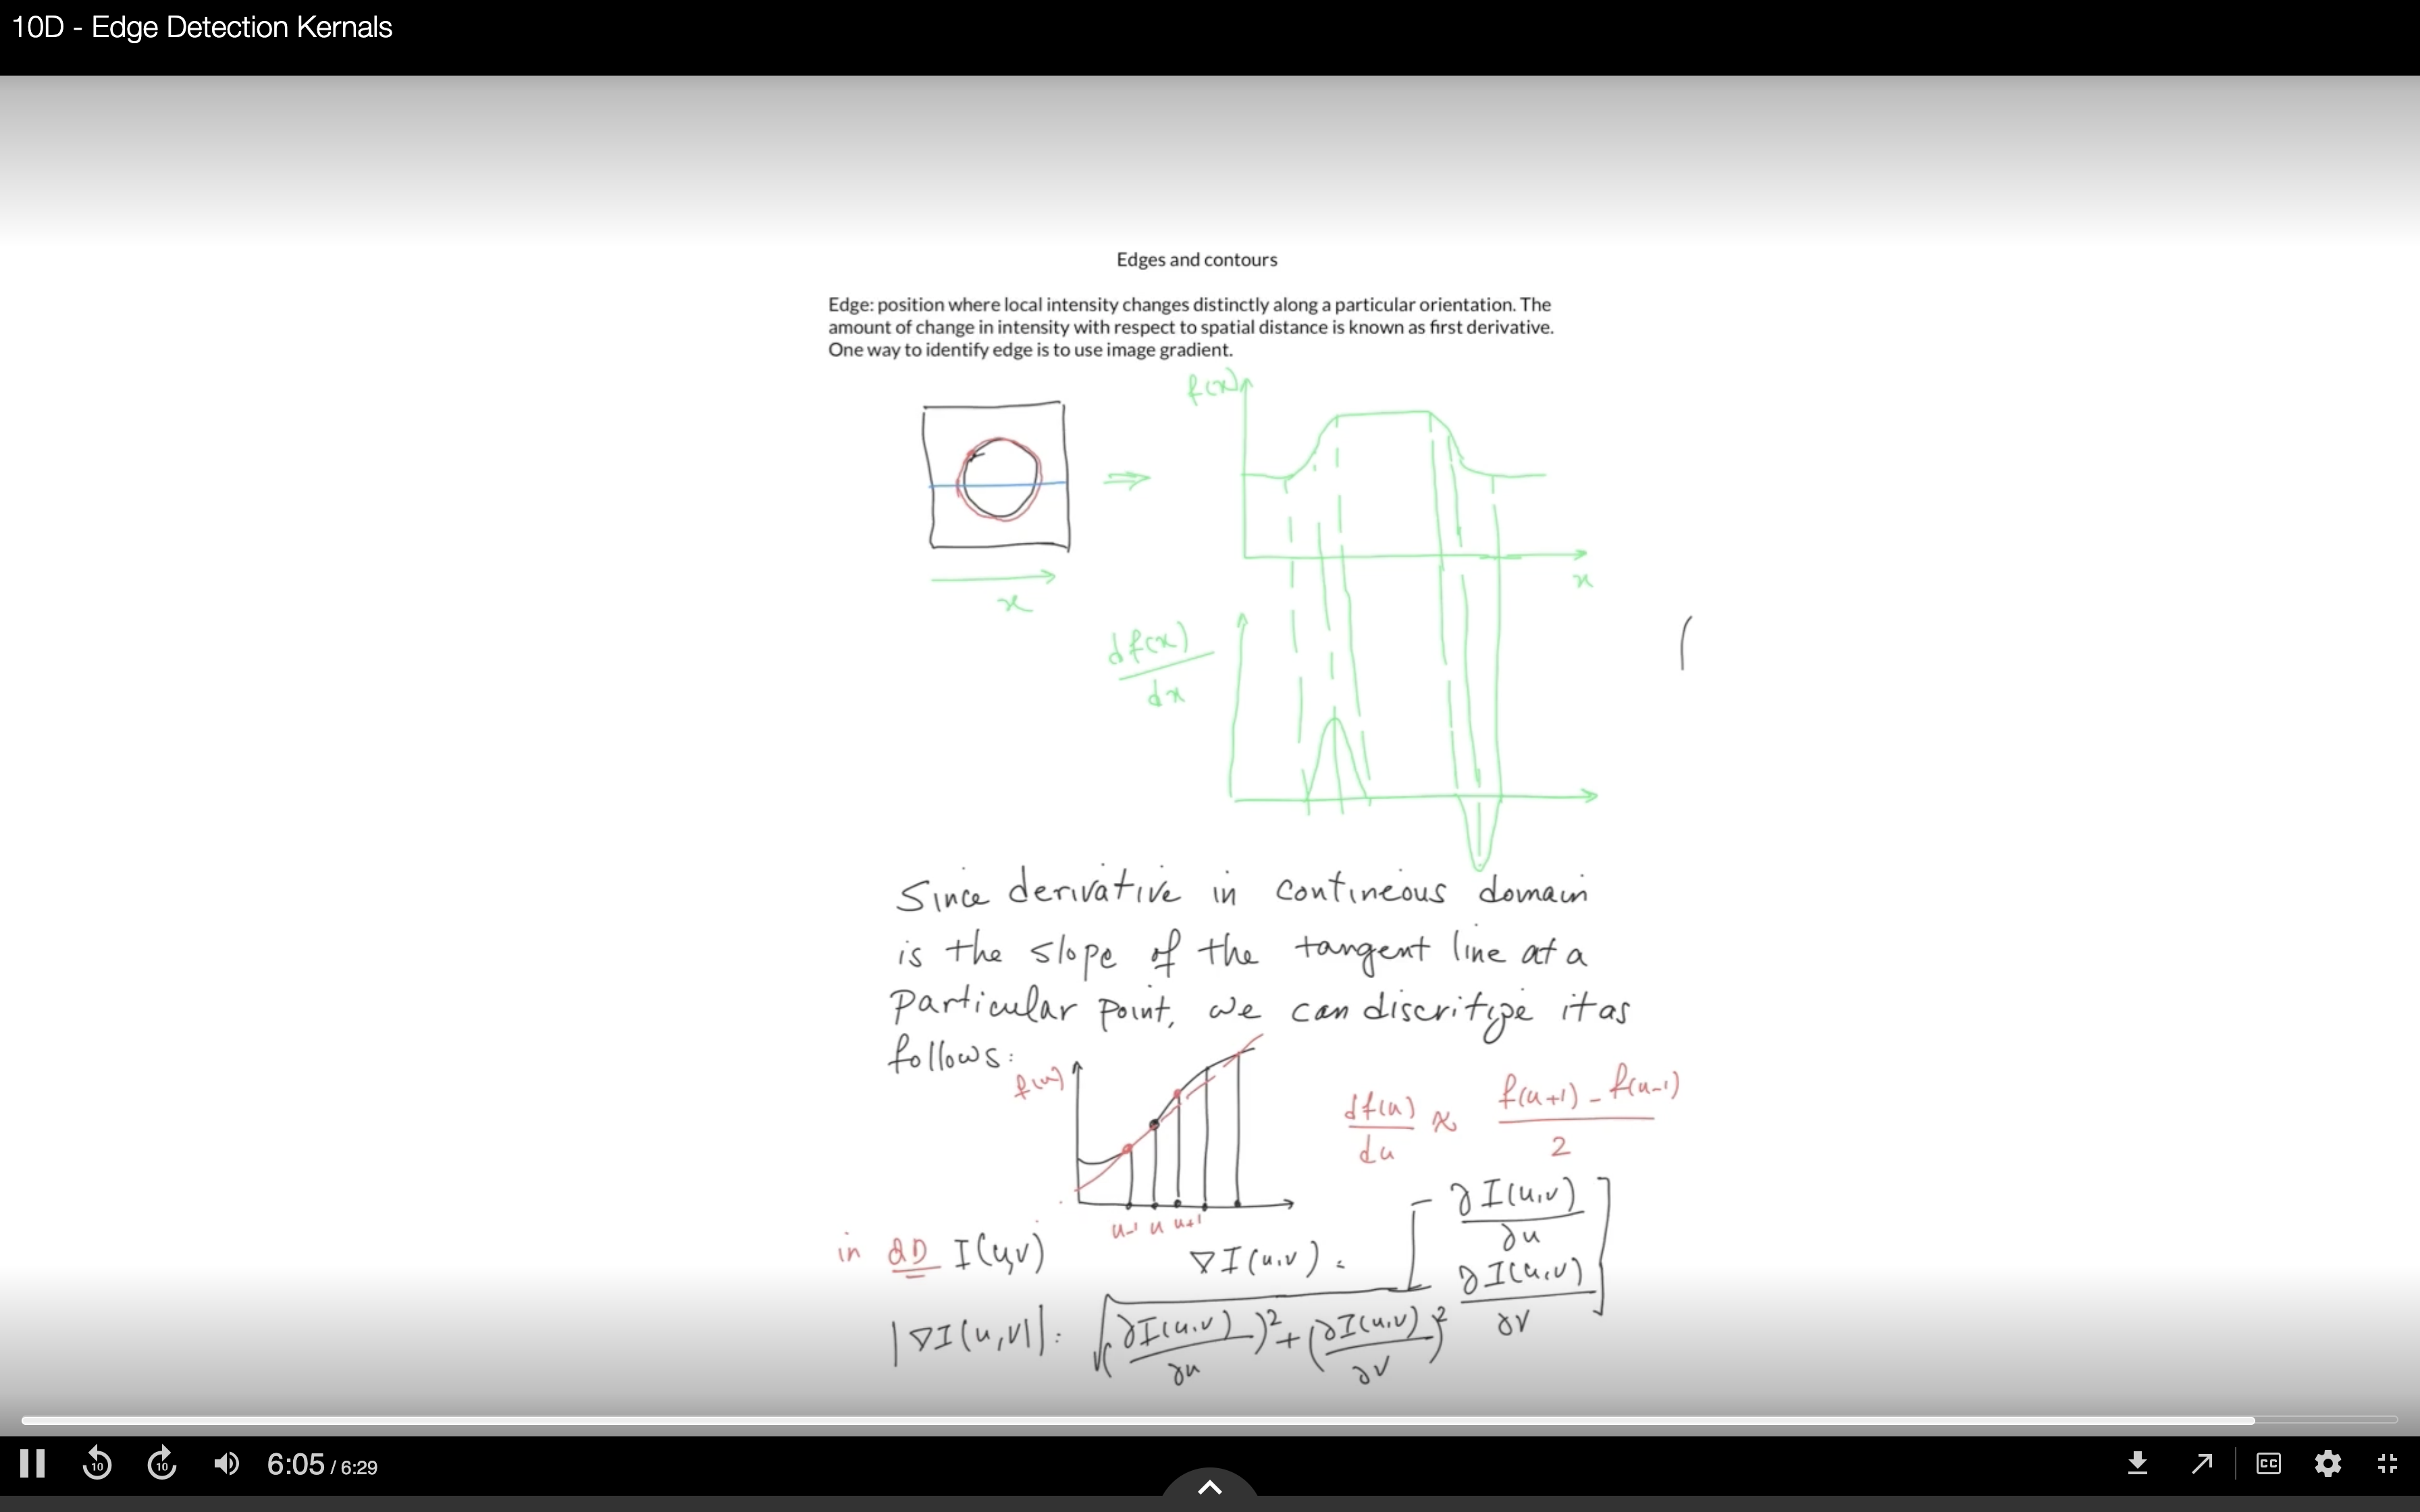 10D - Edge Detection Kernals
Edges and contours
Edge: position where local intensity changes distinctly along a particular orientation. The
amount of change in intensity with respect to spatial distance is known as first derivative.
One way to identify edge is to use image gradient.
f(x)
x
x
df(x)
dx
Since derivative in contineous domain
is the slope of the tangent line at a
particular point, we can discritize it as
follows:
f(u)
df(u)/du ≈ f(u+1) - f(u-1)/2
u-1 u u+1
in 2D I(u,v)
∇I(u,v) = [∂I(u,v)/∂u
∂I(u,v)/∂v]
|∇I(u,v)| = √(∂I(u,v)/∂u)² + (∂I(u,v)/∂v)²
10
10
6:05 / 6:29
CC